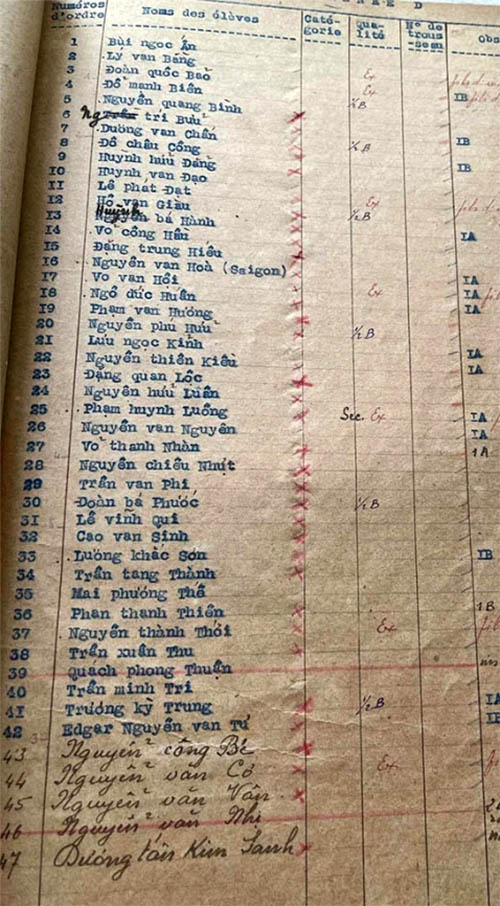 NNEE D
Numéros d'ordre Noms des élèves Caté- gorie Qua- lité No de trous- seau Obs
1 Bùi ngoc Ẩn
2 Lý van Bàng
3 Đoàn quốc Bao Ex
4 Đổ manh Biên Ex IB
5 Nguyễn quang Bình ½ B
6 Ng trí Bửu
7 Dương van Chấn
8 Đổ châu Công ½ B IB
9 Huỳnh hưu Đăng IB
10 Huỳnh van Đạo
11 Lê phát Đạt
12 Hồ van Giàu Ex
13 Huỳnh bá Hành ½ B
14 Vo công Hầu IA
15 Đặng trung Hiếu
16 Nguyễn van Hoà (Saigon)
17 Vo van Hồi IA
18 Ngô đức Huấn Ex IA
19 Phạm van Hương IA
20 Nguyễn phú Hưu ½ B
21 Lưu ngọc Kỉnh
22 Nguyễn thiên Kiều IA
23 Đặng quan Lộc IA
24 Nguyễn hưu Luân
25 Phạm huynh Luông Sec. Ex IA
26 Nguyễn van Nguyên IA
27 Vo thanh Nhàn 1A
28 Nguyễn chiêu Nhựt
29 Trần van Phi
30 Đoàn bá Phước ½ B
31 Lê vinh Qui
32 Cao van Sinh
33 Lương khắc Sơn IB
34 Trần tang Thành
35 Mai phương Thế
36 Phan thanh Thiên 1B
37 Nguyễn thành Thới Ex
38 Trần xuân Thu
39 Quách phong Thuận
40 Trần minh Tri
41 Trương kỳ Trung ½ B IA
42 Edgar Nguyễn van Tư IB
43 Nguyễn công Bé
44 Nguyễn văn Cơ Ex
45 Nguyễn văn Vân
46 Nguyễn văn Nhi
47 Dương tân Kim Sanh